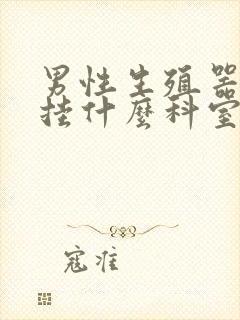 男性生殖器
挂什麼科室
寇准